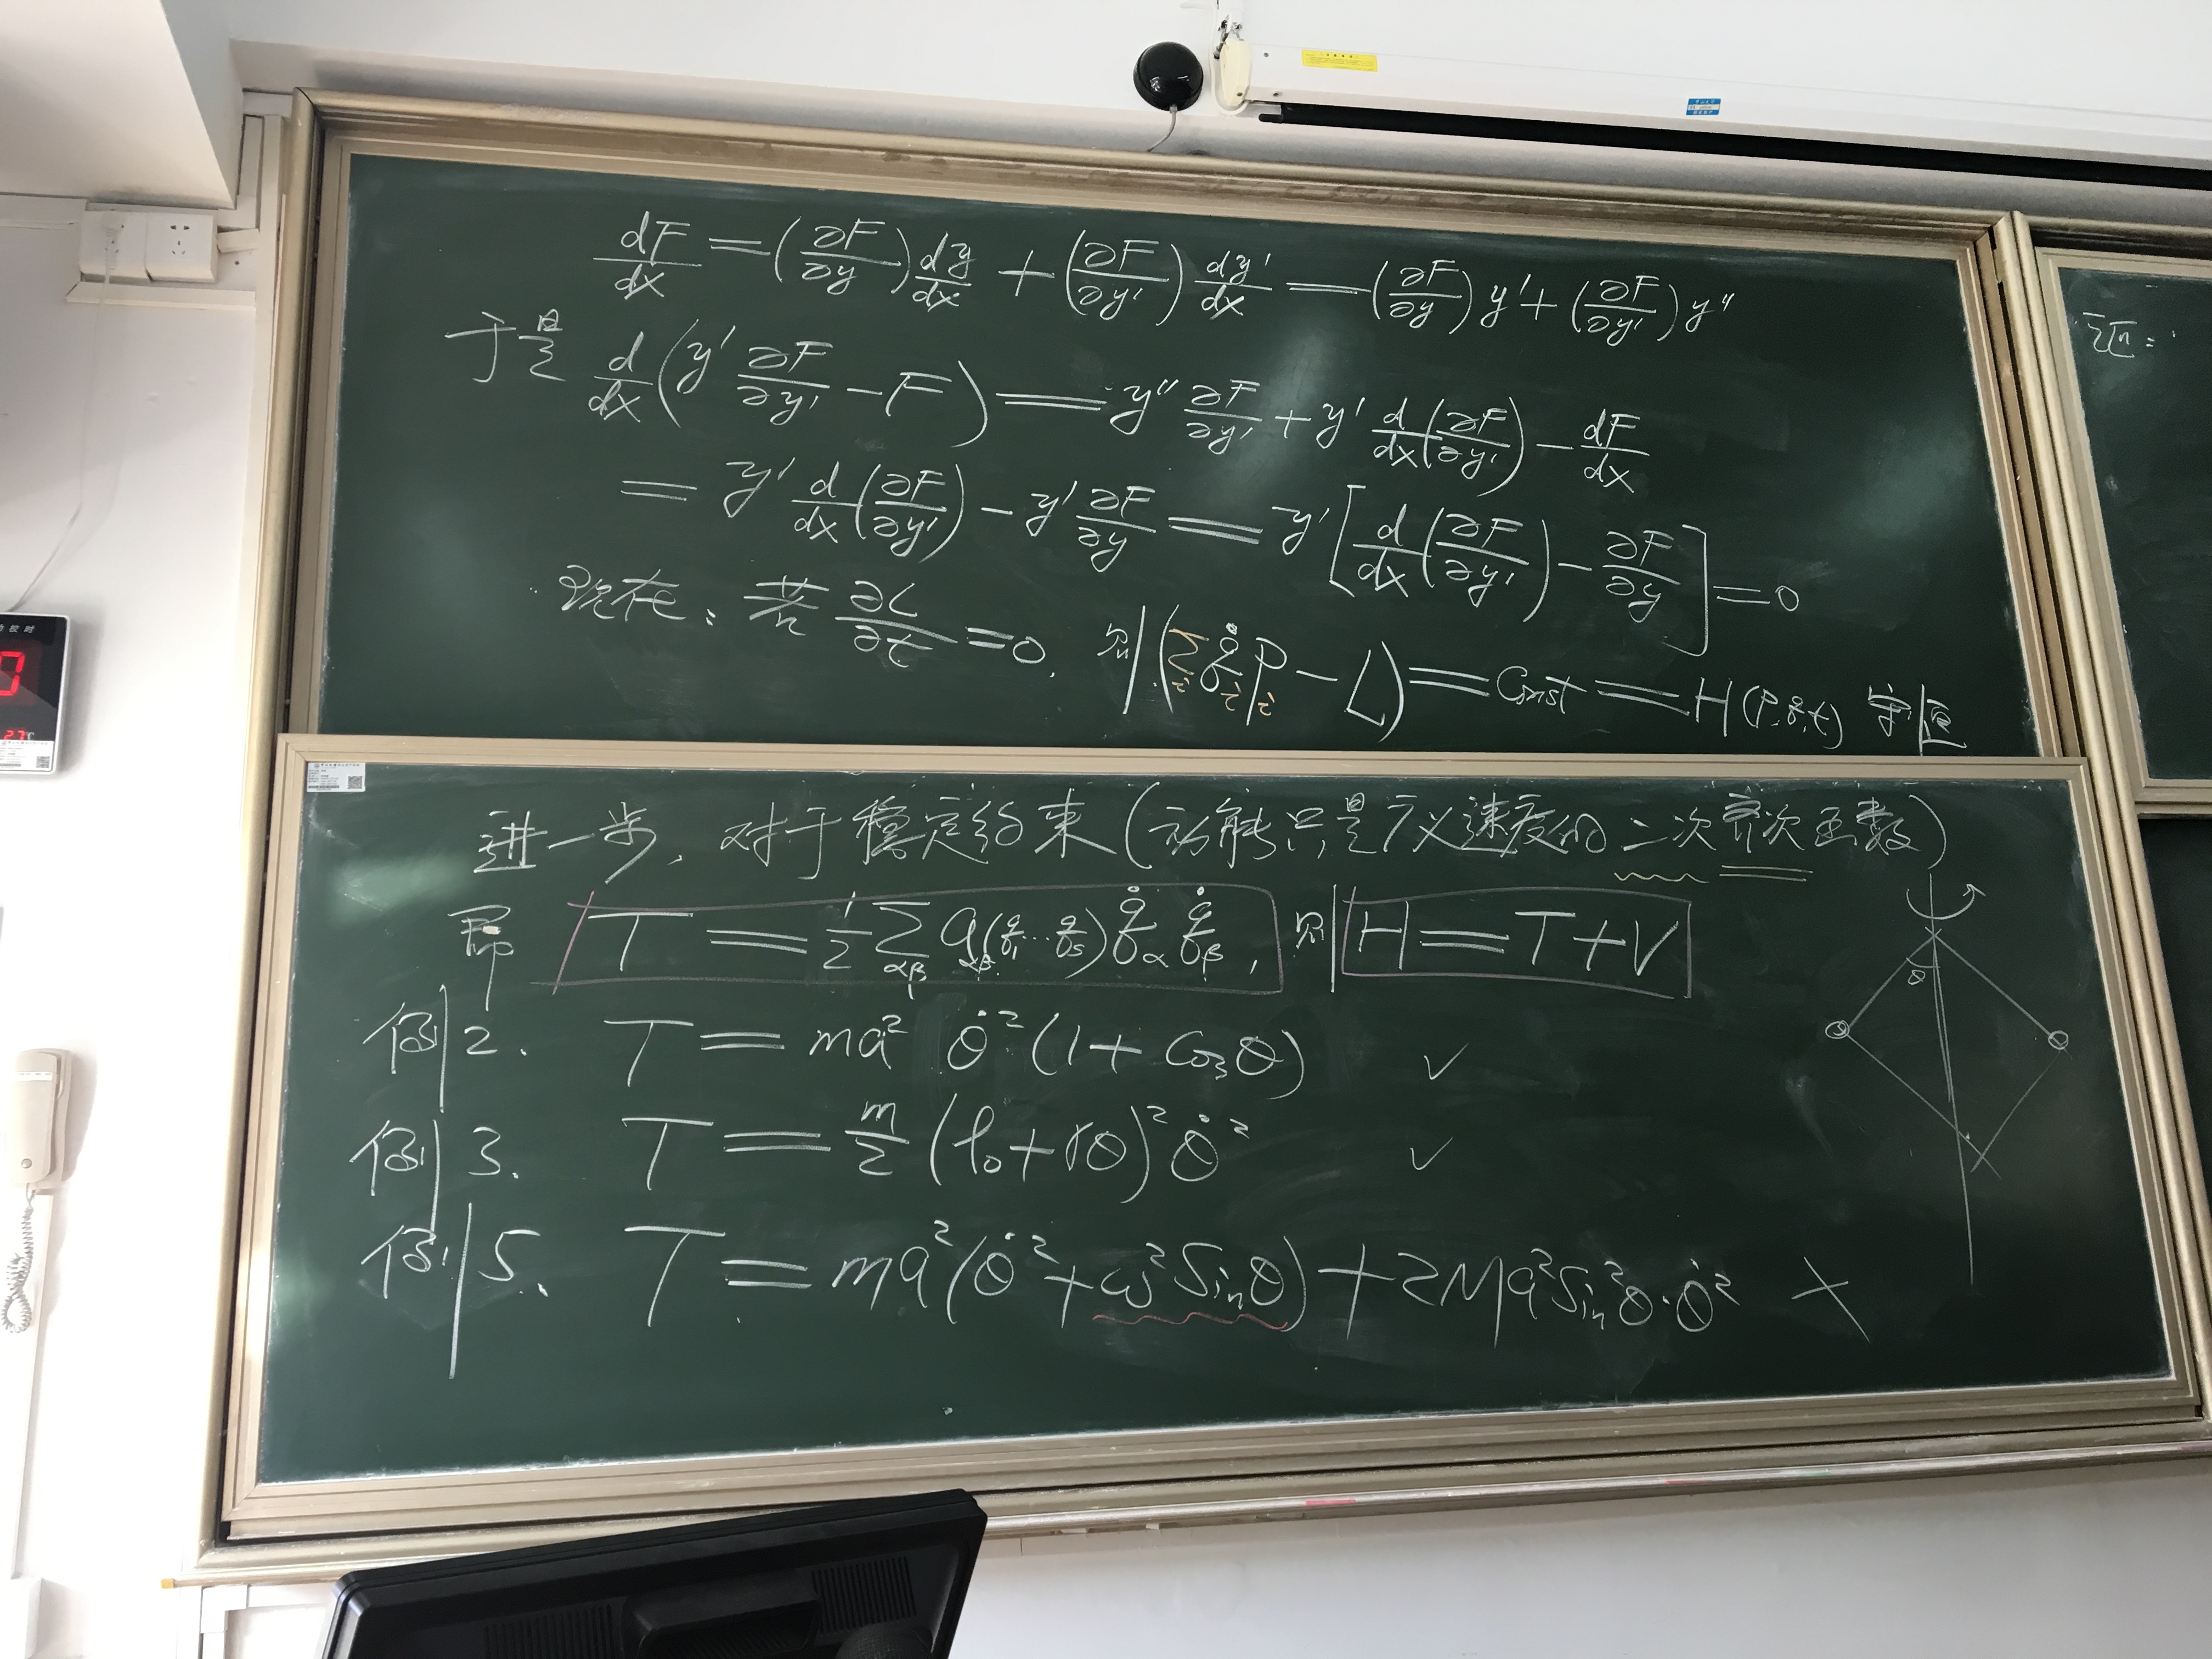 dF/dx = (∂F/∂y) dy/dx + (∂F/∂y') dy'/dx = (∂F/∂y) y' + (∂F/∂y') y''
于是 d/dx (y' ∂F/∂y' − F) = y'' ∂F/∂y' + y' d/dx (∂F/∂y') − dF/dx
= y' d/dx (∂F/∂y') − y' ∂F/∂y = y' [d/dx (∂F/∂y') − ∂F/∂y] = 0
现在: 若 ∂L/∂t = 0. 则 (Σ_i q̇_i p_i − L) = Const = H(p,q,t) 守恒
证:
进一步, 对于稳定约束 (动能只是广义速度的二次齐次函数)
即 T = 1/2 Σ_αβ a_αβ(q₁…q_s) q̇_α q̇_β, 则 H = T + V
例2. T = ma² θ̇² (1 + cosθ) ✓
例3. T = m/2 (l₀ + rθ)² θ̇² ✓
例5. T = ma² (θ̇² + ω² Sinθ) + 2Ma² Sin²θ·θ̇² ×
θ
校时
27℃